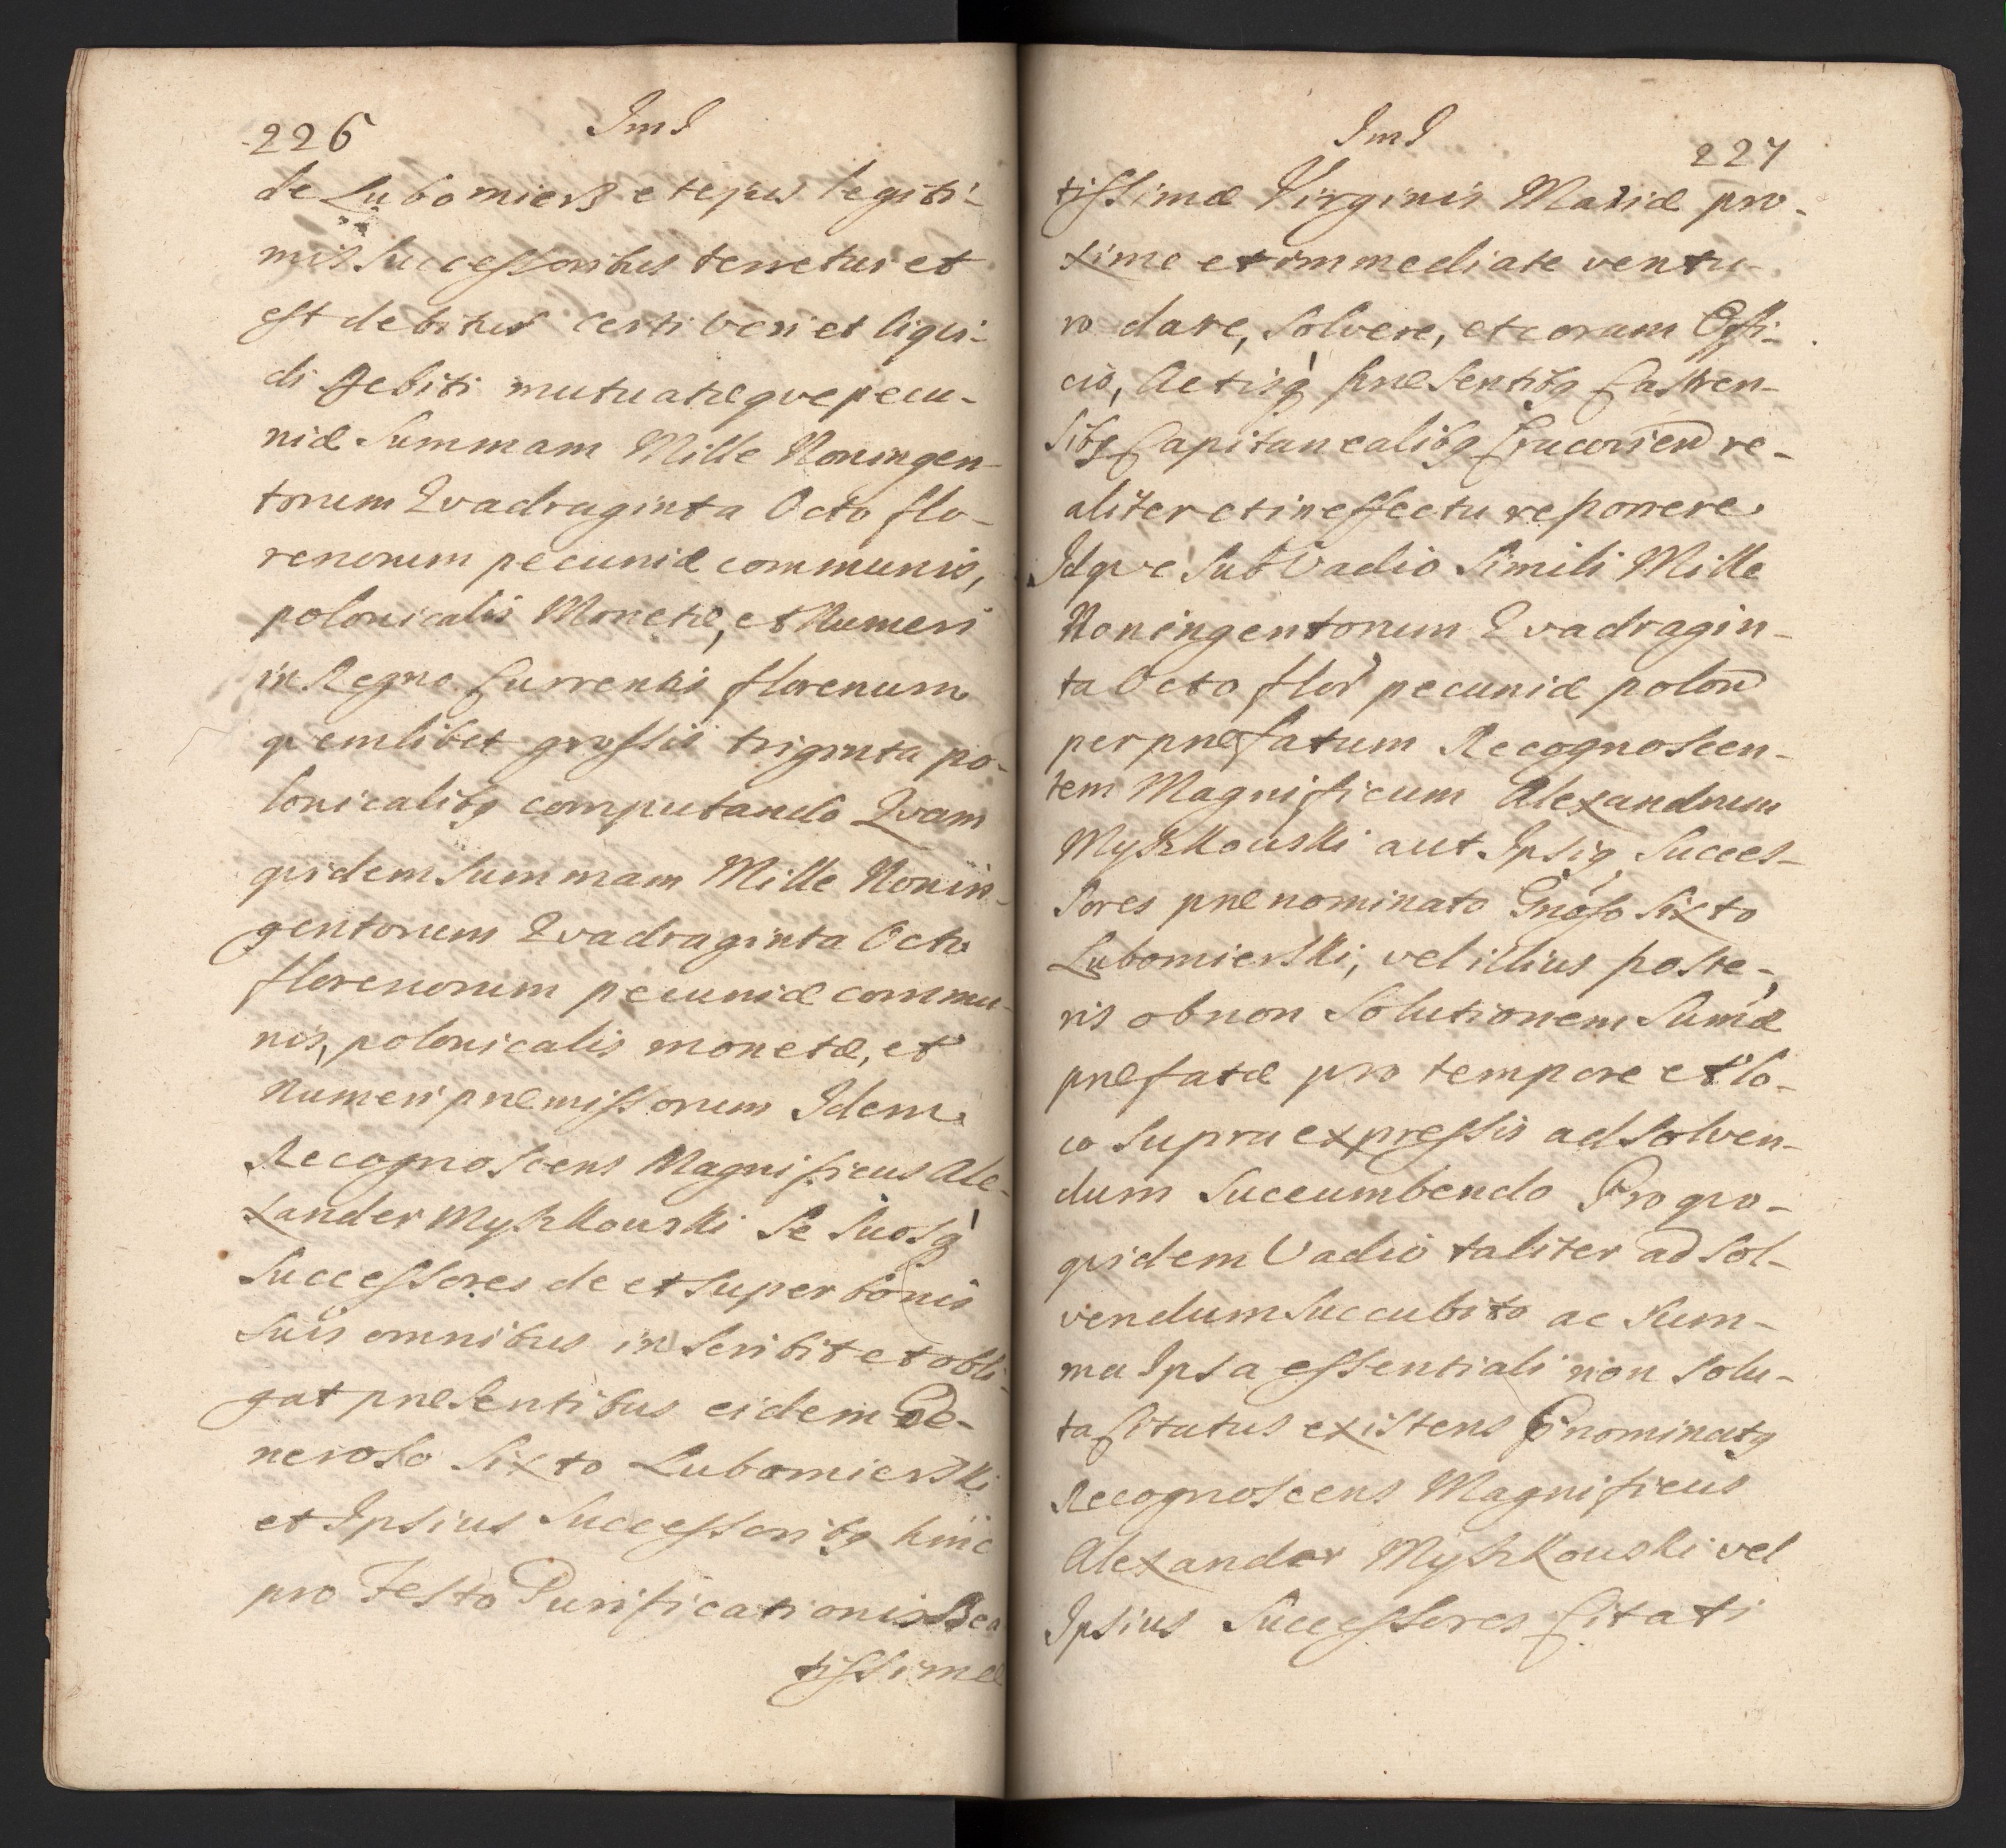 226
ImI
de Lubomiersz et ejus legiti-
mis Successoribus tenetur et
est debitus certi veri et liqui-
di debiti mutuatæqve pecu-
niæ Summam Mille Noningen-
torum Qvadraginta Octo flo-
renorum pecuniæ communis,
polonicalis Monetæ, et Numeri
in Regno Currentis florenum
qvemlibet grossis triginta po-
lonicalibq computando Qvam
qvidem Summam Mille Nonin-
gentorum Qvadraginta Octo
florenorum pecuniæ commu-
nis, polonicalis monetæ, et
Numeri præmissorum Idem
Recognoscens Magnificus Ale-
xander Myszkowski Se Suosq
Successores de et Super bonis
Suis omnibus inscribit et obli-
gat præsentibus eidem Ge-
neroso Sixto Lubomierski
et Ipsius Successoribq hinc
pro Festo Purificationis Bea
tissimæ
ImI
227
tissimæ Virginis Mariæ pro-
xime et immediate ventu-
ro dare, Solvere, et coram Offi-
cio, Actisq præsentibq Castren-
sibq Capitanealibq Cracovien re-
aliter et in effectu reponere.
Idqve Sub Vadio Simili Mille
Noningentorum Qvadragin-
ta Octo flor pecuniæ polon
per præfatum Recognoscen-
tem Magnificum Alexandrum
Myszkowski aut Ipsiq Succes-
sores prænominato Gnoso Sixto
Lubomierski, vel illius poste-
ris ob non Solutionem Sumæ
præfatæ pro tempore et lo-
co Supra expressis ad Solven-
dum Succumbendo Pro qvo-
qvidem Vadio taliter ad Sol-
vendum Succubito ac Sum-
ma Ipsa essentiali non Solu-
ta Citatus existens Pnominatq
Recognoscens Magnificus
Alexander Myszkowski vel
Ipsius Successores Citati